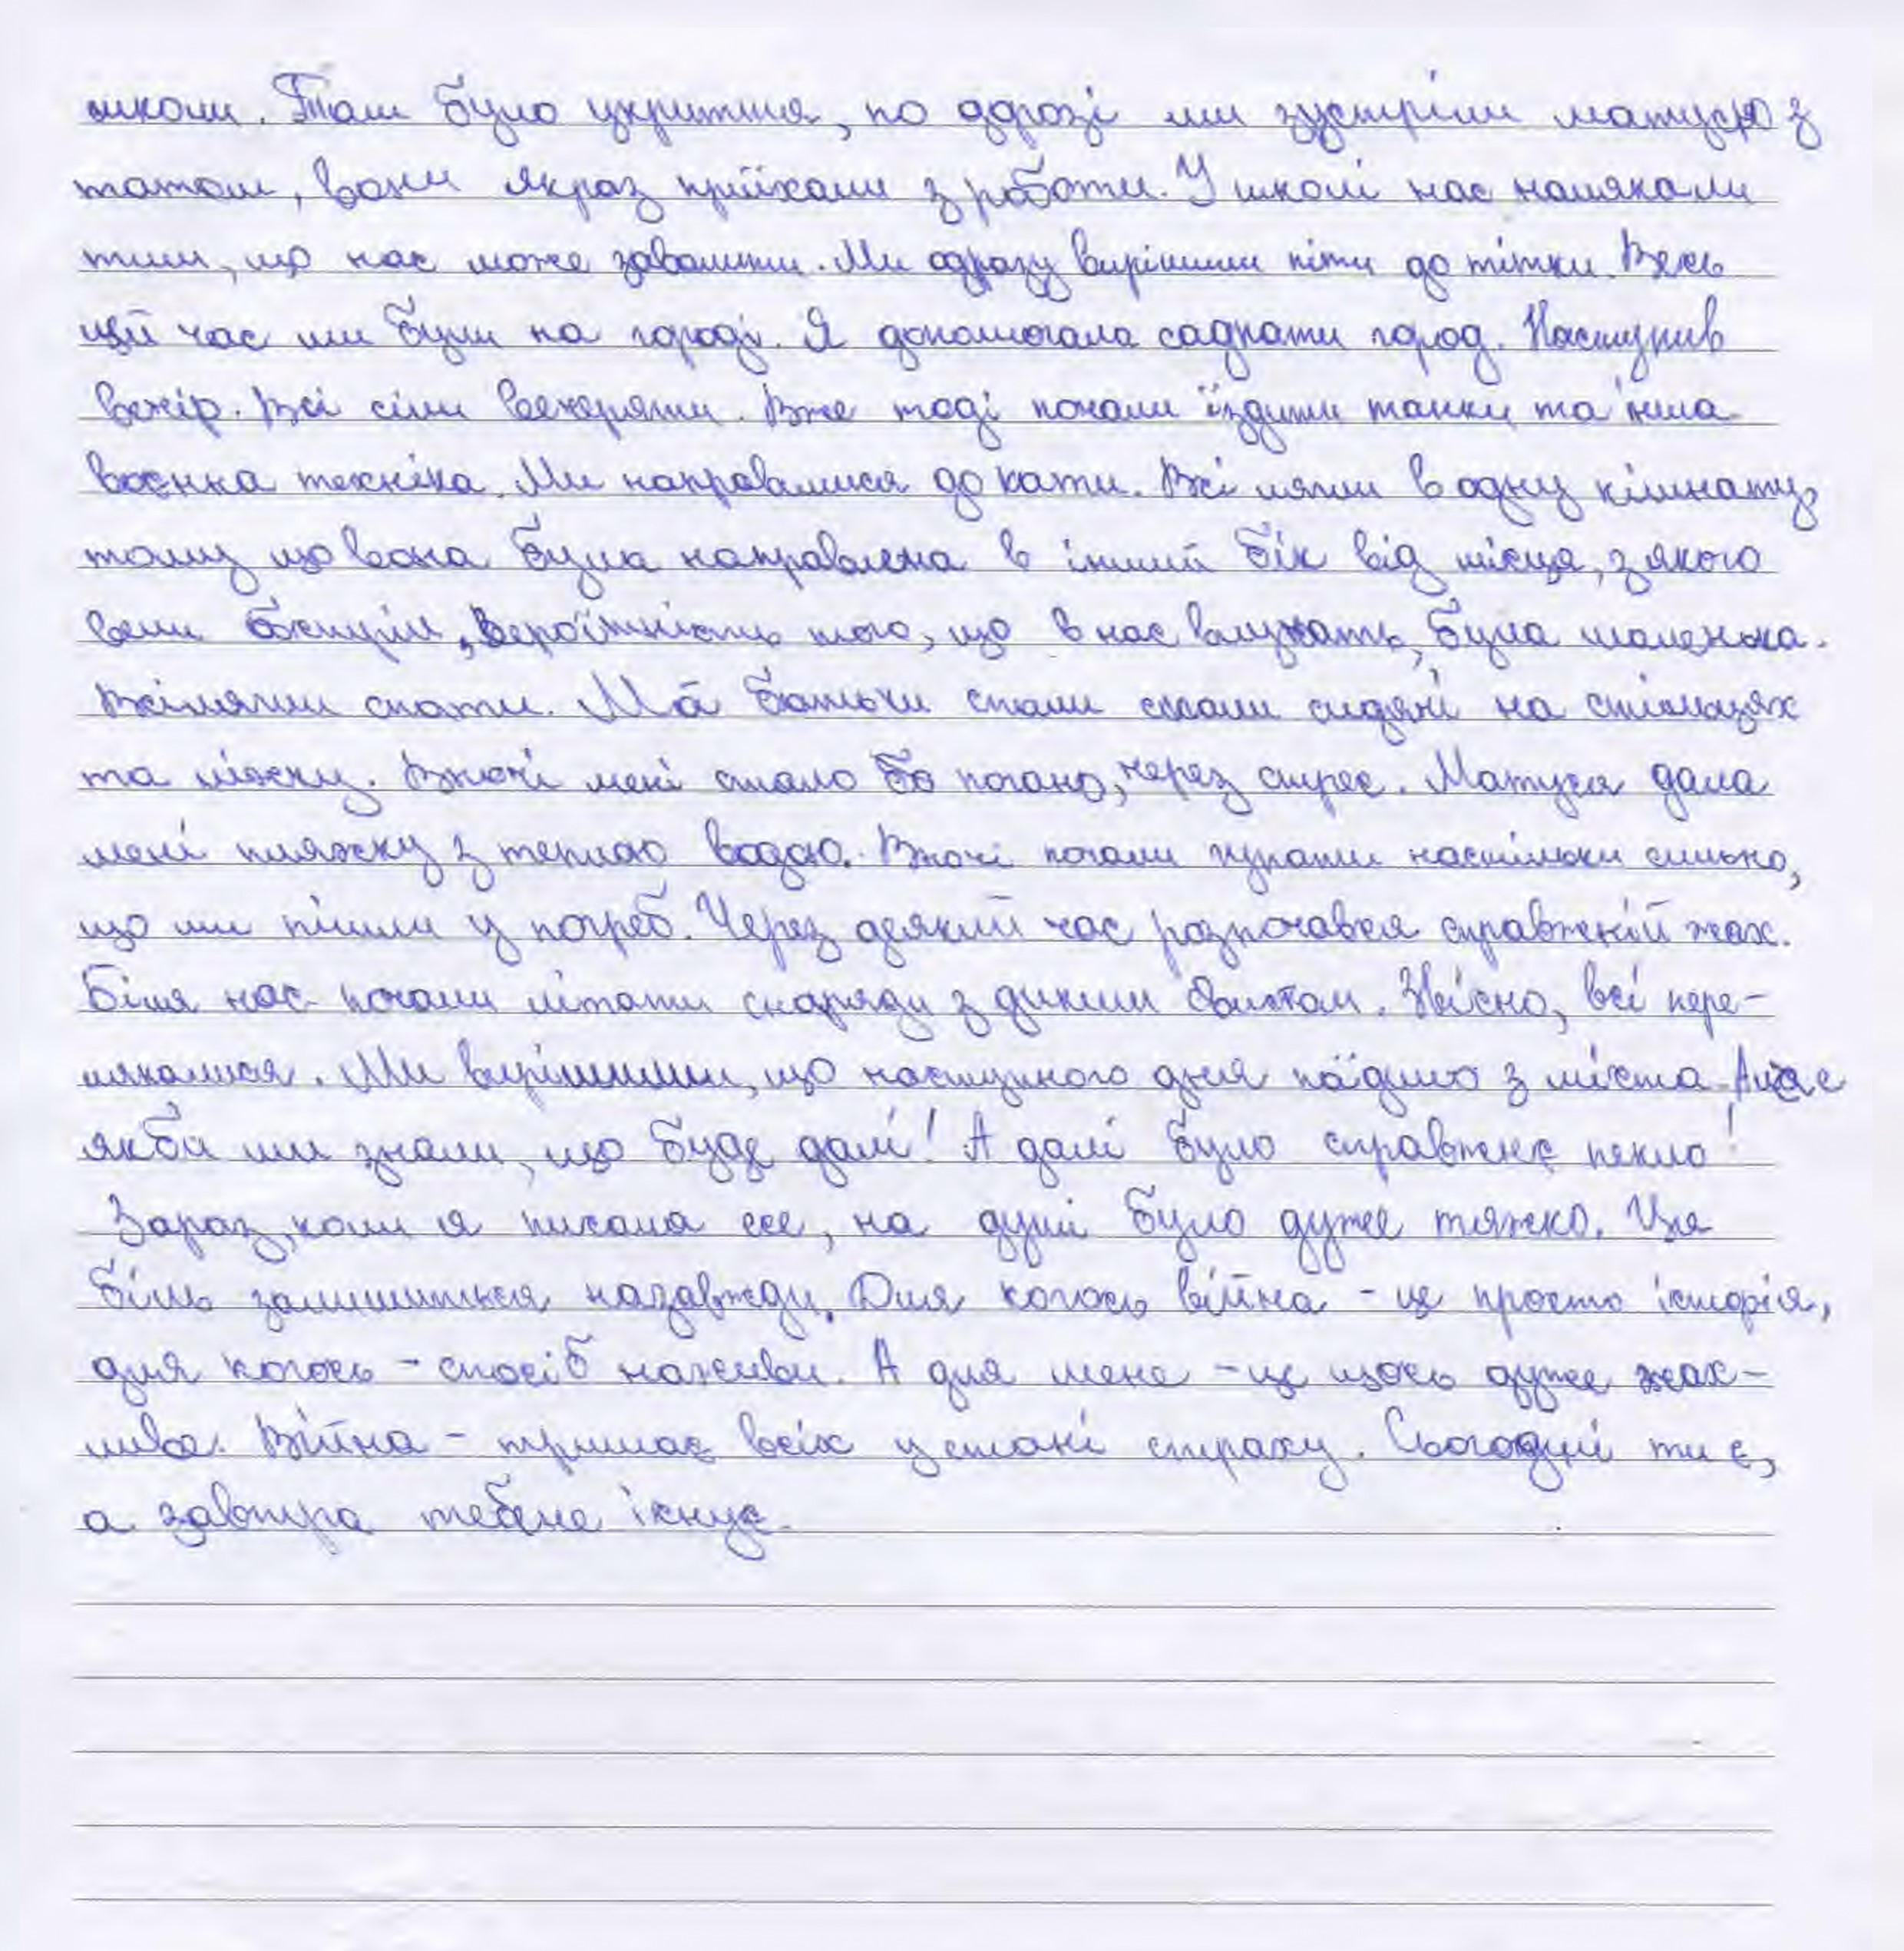 школи. Там було укриття, по дорозі ми зустріли матусю з
татом, вони якраз приїхали з роботи. У школі нас налякали
тим, що нас може завалити. Ми одразу вирішили піти до тітки. Весь
цей час ми були на городі. Я допомогала саджати город. Наступив
вечір. Всі сіли вечеряти. Вже тоді почали їздити танки та інша
воєнна техніка. Ми направилися до хати. Всі лягли в одну кімнату,
тому що вона була направлена в інший бік від місця, з якого
вели обстріли, вероїтність того, що в нас влучать, була маленька.
Всі лягли спати. Мої батьки спали сидячі на стільцях
та ліжку. Вночі мені стало погано, через стрес. Матуся дала
мені пляжку з теплою водою. Вночі почали гупати настільки сильно,
що ми пішли у погреб. Через деякий час розпочався справжній жах.
Біля нас почали літати снаряди з диким свистом. Звісно, всі пере-
лякалися. Ми вирішили, що наступного дня поїдимо з міста. Але
якби ми знали, що буде далі! А далі було справжнє пекло!
Зараз, коли я писала есе, на душі було дуже тяжко. Ця
біль залишиться назавжди. Для когось війна - це просто історія,
для когось - спосіб наживи. А для мене - це щось дуже жах-
ливе. Війна - тримає всіх у стані страху. Сьогодні ти є,
а завтра тебе не існує.